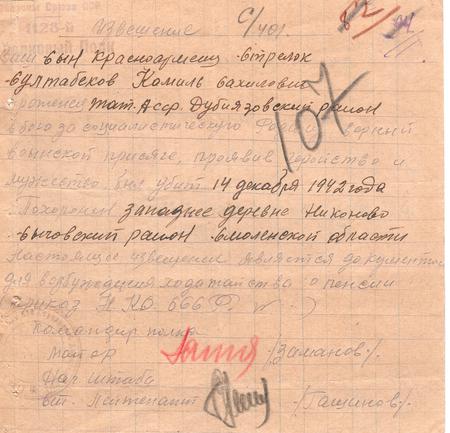 1128
Извещение
107
Ваш сын Красноармеец-стрелок
Султабеков Камиль Вахилович
уроженец Тат. Асср. Дубиязовский район
в бою за социалистическую Родину верный
воинской присяге, проявив геройство и
мужество был убит 14 декабря 1942 года
Похоронен западнее деревне Никоново
Сычовский район Смоленской области
Настоящее извещение является документом
для возбуждения ходатайства о пенсии
(приказ Н.К.О. 666 Р.)
Командир полка
Майор /Заманов/.
Нач. штаба
ст. лейтенант /Гащинов/.